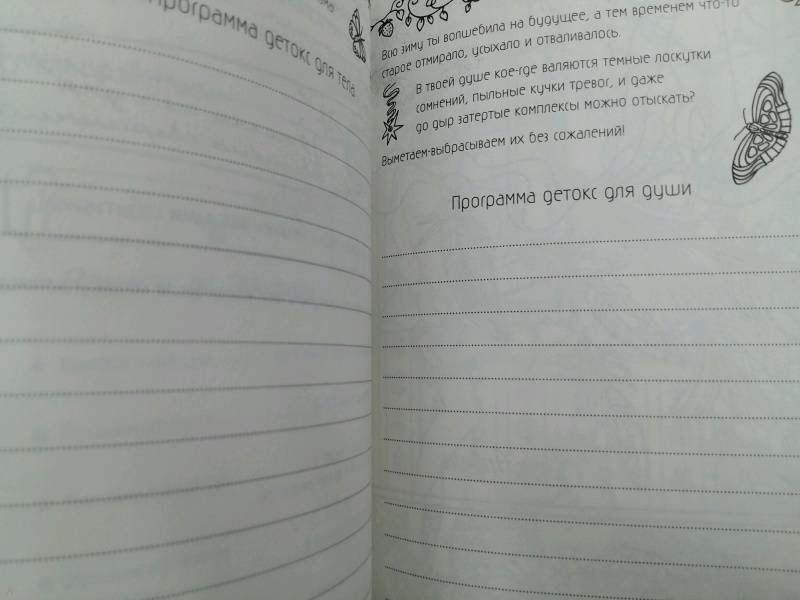 Программа детокс для тела
Всю зиму ты волшебила на будущее, а тем временем что-то
старое отмирало, усыхало и отваливалось.
В твоей душе кое-где валяются темные лоскутки
сомнений, пыльные кучки тревог, и даже
до дыр затертые комплексы можно отыскать?
Выметаем-выбрасываем их без сожалений!
Программа детокс для души